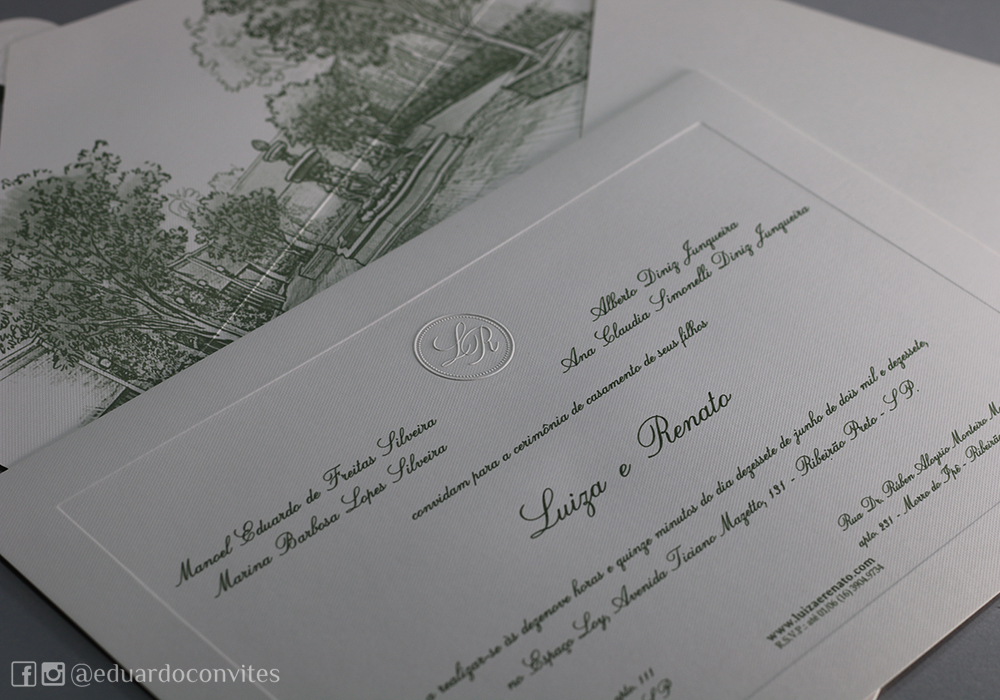 LR
Manoel Eduardo de Freitas Silveira
Marina Barbosa Lopes Silveira
Alberto Diniz Junqueira
Ana Claudia Simonelli Diniz Junqueira
convidam para a cerimônia de casamento de seus filhos
Luiza e Renato
a realizar-se às dezenove horas e quinze minutos do dia dezessete de junho de dois mil e dezessete,
no Espaço Loy, Avenida Ticiano Mazetto, 131 - Ribeirão Preto - SP.
111
SP
Rua Dr. Rubem Aloysio Monteiro
apto. 231 - Morro do Ipê - Ribeirão
www.luizaerenato.com
R.S.V.P.: até 01/06 (16) 3904.9734
@eduardoconvites